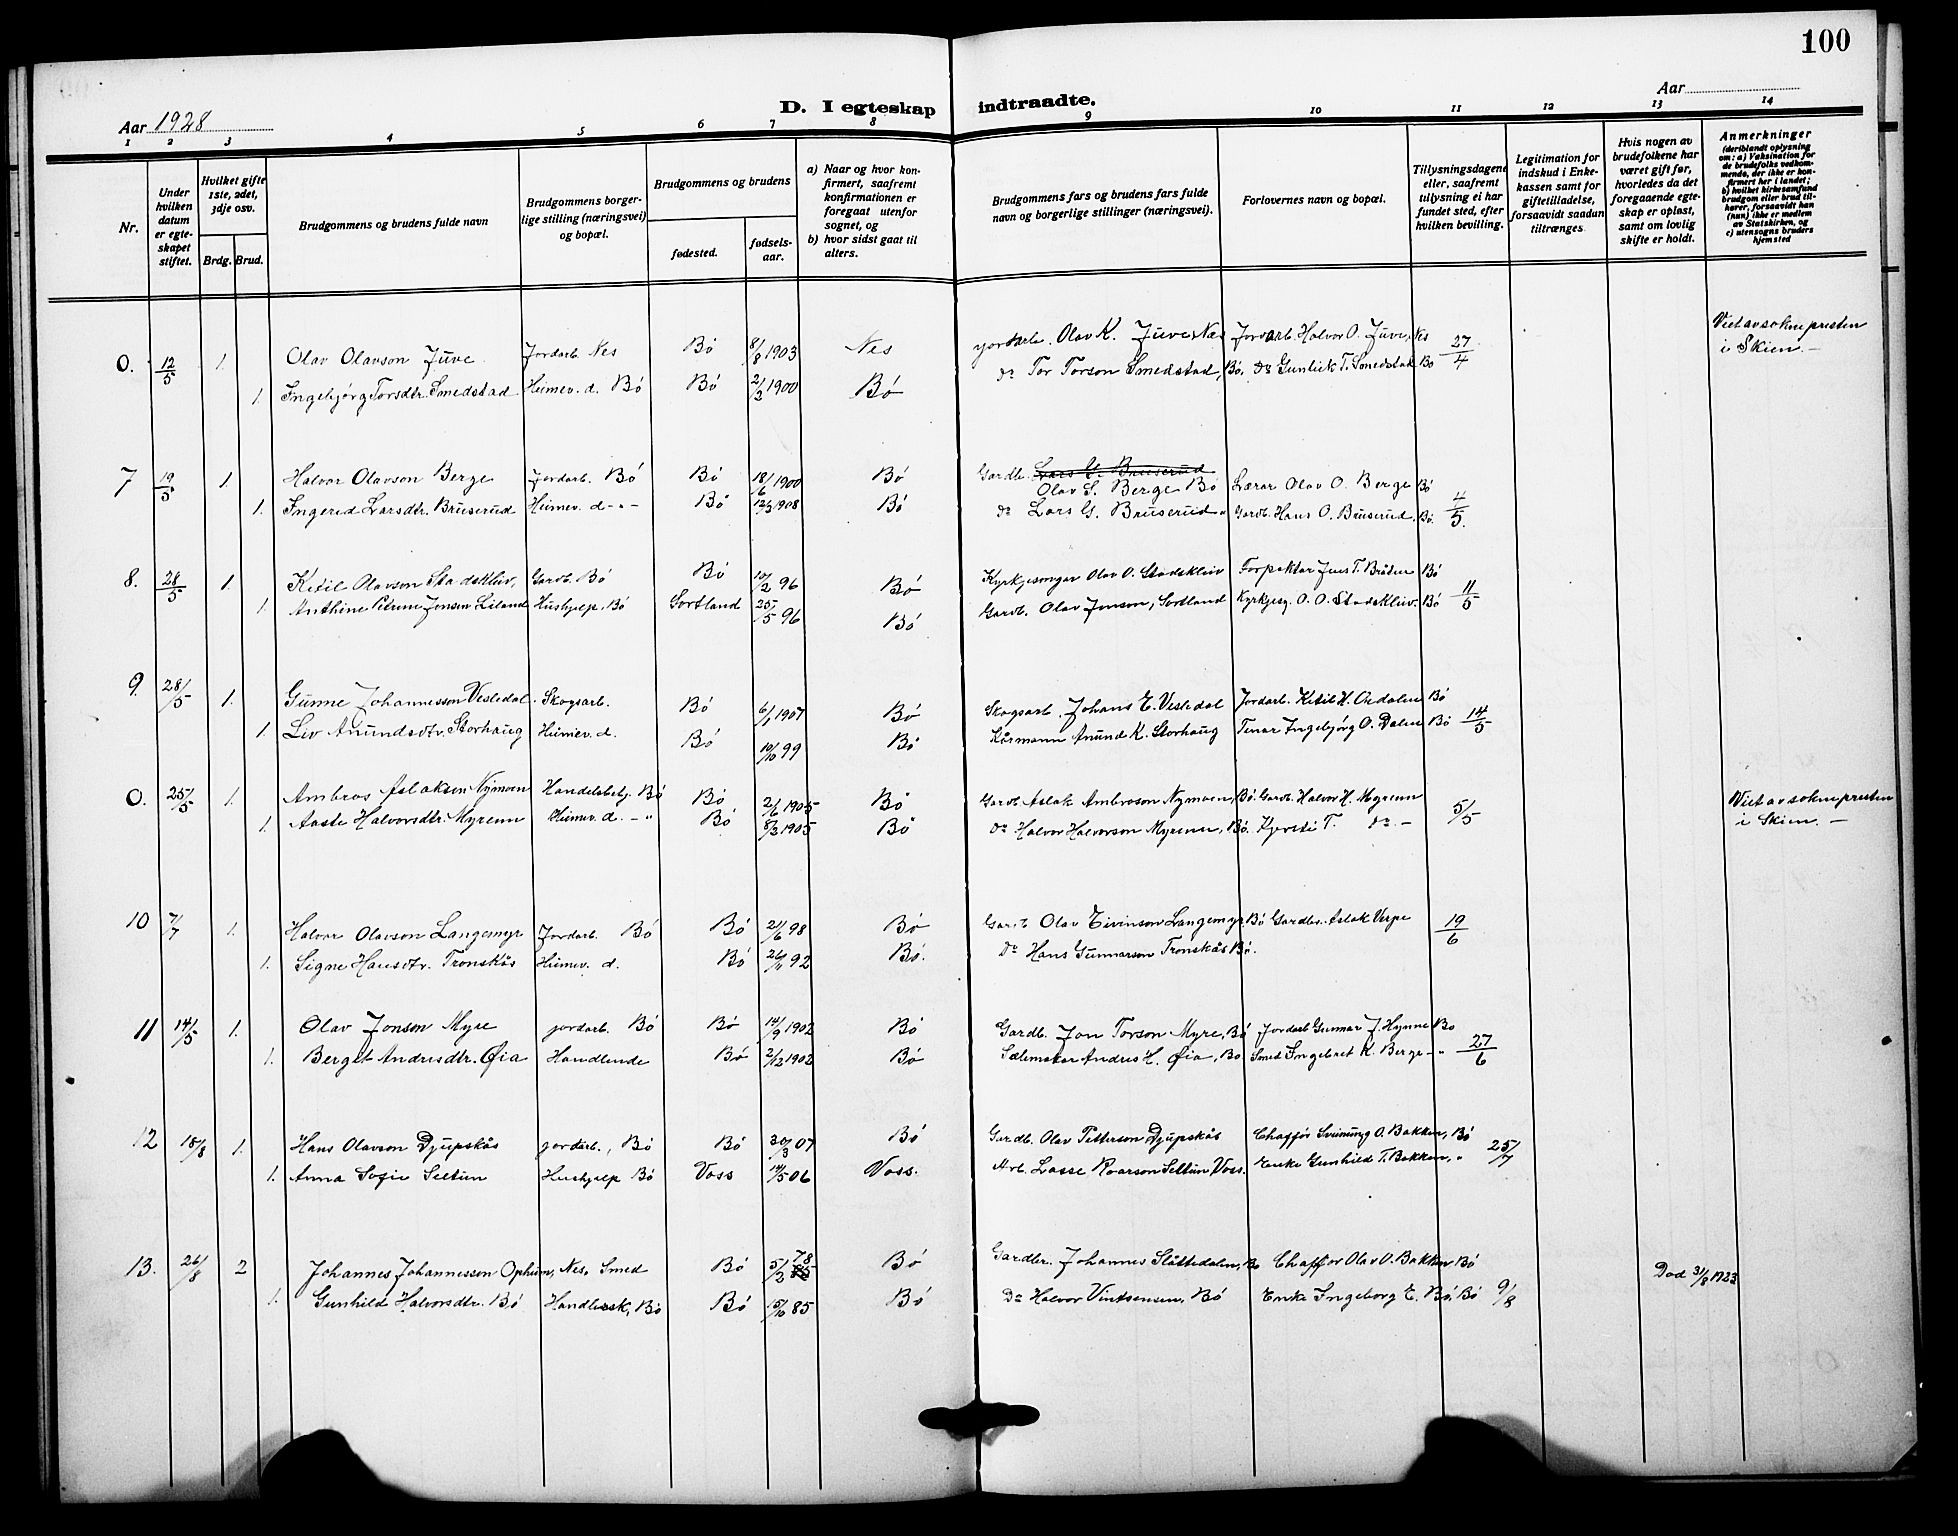 100
Aar 1928
D. I egteskap indtraadte.
Aar
1 2 3 4 5 6 7 8 9 10 11 12 13 14
Nr.
Under hvilken datum er egteskapet stiftet.
Hvilket gifte 1ste, 2det, 3dje osv.
Brdg. Brud.
Brudgommens og brudens fulde navn
Brudgommens borgerlige stilling (næringsvei) og bopæl.
Brudgommens og brudens
fødested.
fødselsaar.
a) Naar og hvor konfirmert, saafremt konfirmationen er foregaat utenfor sognet, og
b) hvor sidst gaat til alters.
Brudgommens fars og brudens fars fulde navn og borgerlige stillinger (næringsvei).
Forlovernes navn og bopæl.
Tillysningsdagene eller, saafremt tillysning ei har fundet sted, efter hvilken bevilling.
Legitimation for indskud i Enkekassen samt for giftetilladelse, forsaavidt saadan tiltrænges
Hvis nogen av brudefolkene har været gift før, hvorledes da det foregaaende egteskap er opløst, samt om lovlig skifte er holdt.
Anmerkninger
(deriblandt oplysning om: a) Vaksination for de brudefolks vedkommende, der ikke er konfirmert her i landet; b) hvilket kirkesamfund brudgom eller brud tilhører, forsaavidt han (hun) ikke er medlem av Statskirken, og c) utensogns bruders hjemsted
0. 12/5 1. Olav Olavson Juve Jordarb. Nes Bø 8/8 1903 Nes Jordarb. Olav K. Juve, Nes Jordarb. Halvor O. Juve, Nes 27/4 Viet av soknepresten i Skien. –
1. Ingebjørg Torsdtr. Smedstad Heimev. d. Bø Bø 2/2 1900 Bø do Tor Torson Smedstad, Bø. do Gunleik T. Smedstad Bø
7 19/5 1. Halvor Olavson Berge Jordarb. Bø Bø 18/6 1900 Bø Gardb. Lars G. Bruserud
Olav S. Berge Bø Lærar Olav O. Berge Bø 4/5.
1. Ingerid Larsdtr. Bruserud Heimev. d -"- Bø 12/3 1908 Bø do Lars G. Bruserud " Gardb. Hans O. Bruserud, Bø.
8. 28/5 1. Ketil Olavson Stadskleiv, Gardb. Bø Bø 10/2 96 Bø Kyrkjesongar Olav O. Stadskleiv Forpaktar Jens T. Bråten Bø 11/5
1. Anthine Petrine Jensen Liland Hushjelp, Bø Sortland 25/5 96 Bø Gardb. Olav Jonson, Sortland Kyrkjesg. O. O. Stadskleiv. Bø
9. 28/5 1. Gunne Johannesson Vesledal Skogsarb. Bø 6/1 1907 Bø Skogsarb. Johans E. Vesledal Jordarb. Ketil H. Oredalen Bø 14/5
1. Liv Anundsdtr. Storhaug Heimev. d. Bø 10/10 99 Bø Kårmann Anund K. Storhaug Tenar Ingebjørg O. Dalen Bø
0. 25/5 1. Ambros Aslaksen Nymoen Handelsbetj. Bø Bø 2/6 1905 Bø Gardb. Aslak Ambroson Nymoen, Bø. Gardb. Halvor H. Myrenn 5/5 Viet av soknepresten i Skien. –
1. Aaste Halvorsdtr. Myrenn Heimev. d. – " Bø 8/3 1905 Bø do Halvor Halvorson Myrenn, Bø. Kjersti T. do. –
10 7/7 1. Halvor Olavson Langemyr Jordarb. Bø Bø 21/6 98 Bø Gardb Olav Eivinson Langemyr, Bø Gardbr. Aslak Verpe 19/6
1. Signe Hansdtr. Tronskås Heimev. d. Bø 26/11 92 Bø. Do Hans Gunnarson Tronskås Bø.
11 14/5 1. Olav Jonson Myre jordarb. Bø Bø 14/9 1902 Bø Gardb. Jon Torson Myre, Bø Jordarb Gunnar J. Hynne Bø 27/6
1. Bergit Andrisdtr. Øia Handlende Bø 2/12 1902 Bø Salmakar Andris H. Øia, Bø Smed Ingebret K. Berge – "
12 18/8 1. Hans Olavson Djupskås jordarb., Bø Bø 30/3 07 Bø Gardb. Olav Petterson Djupskås Chaffør Sveinung O. Bakken, Bø 25/7
1. Anna Sofie Seltun Hushjelp Bø Voss 14/5 06 Voss. Arb. Lasse Roarson Seltun Voss. Enke Gunhild T. Bakken, "
13. 26/8 2 Johannes Johannessen Ophum, Nes, Smed Bø 5/3 78 Bø Gardbr. Johannes Slåttedalen, Bø Chaffør Olav O. Bakken Bø Død 31/8 1923
1. Gunhild Halvorsdtr. Bø Handlersk, Bø Bø 15/10 85 Bø Do Halvor Vintsensen, Bø Enke Ingeborg E. Bø, Bø 9/8